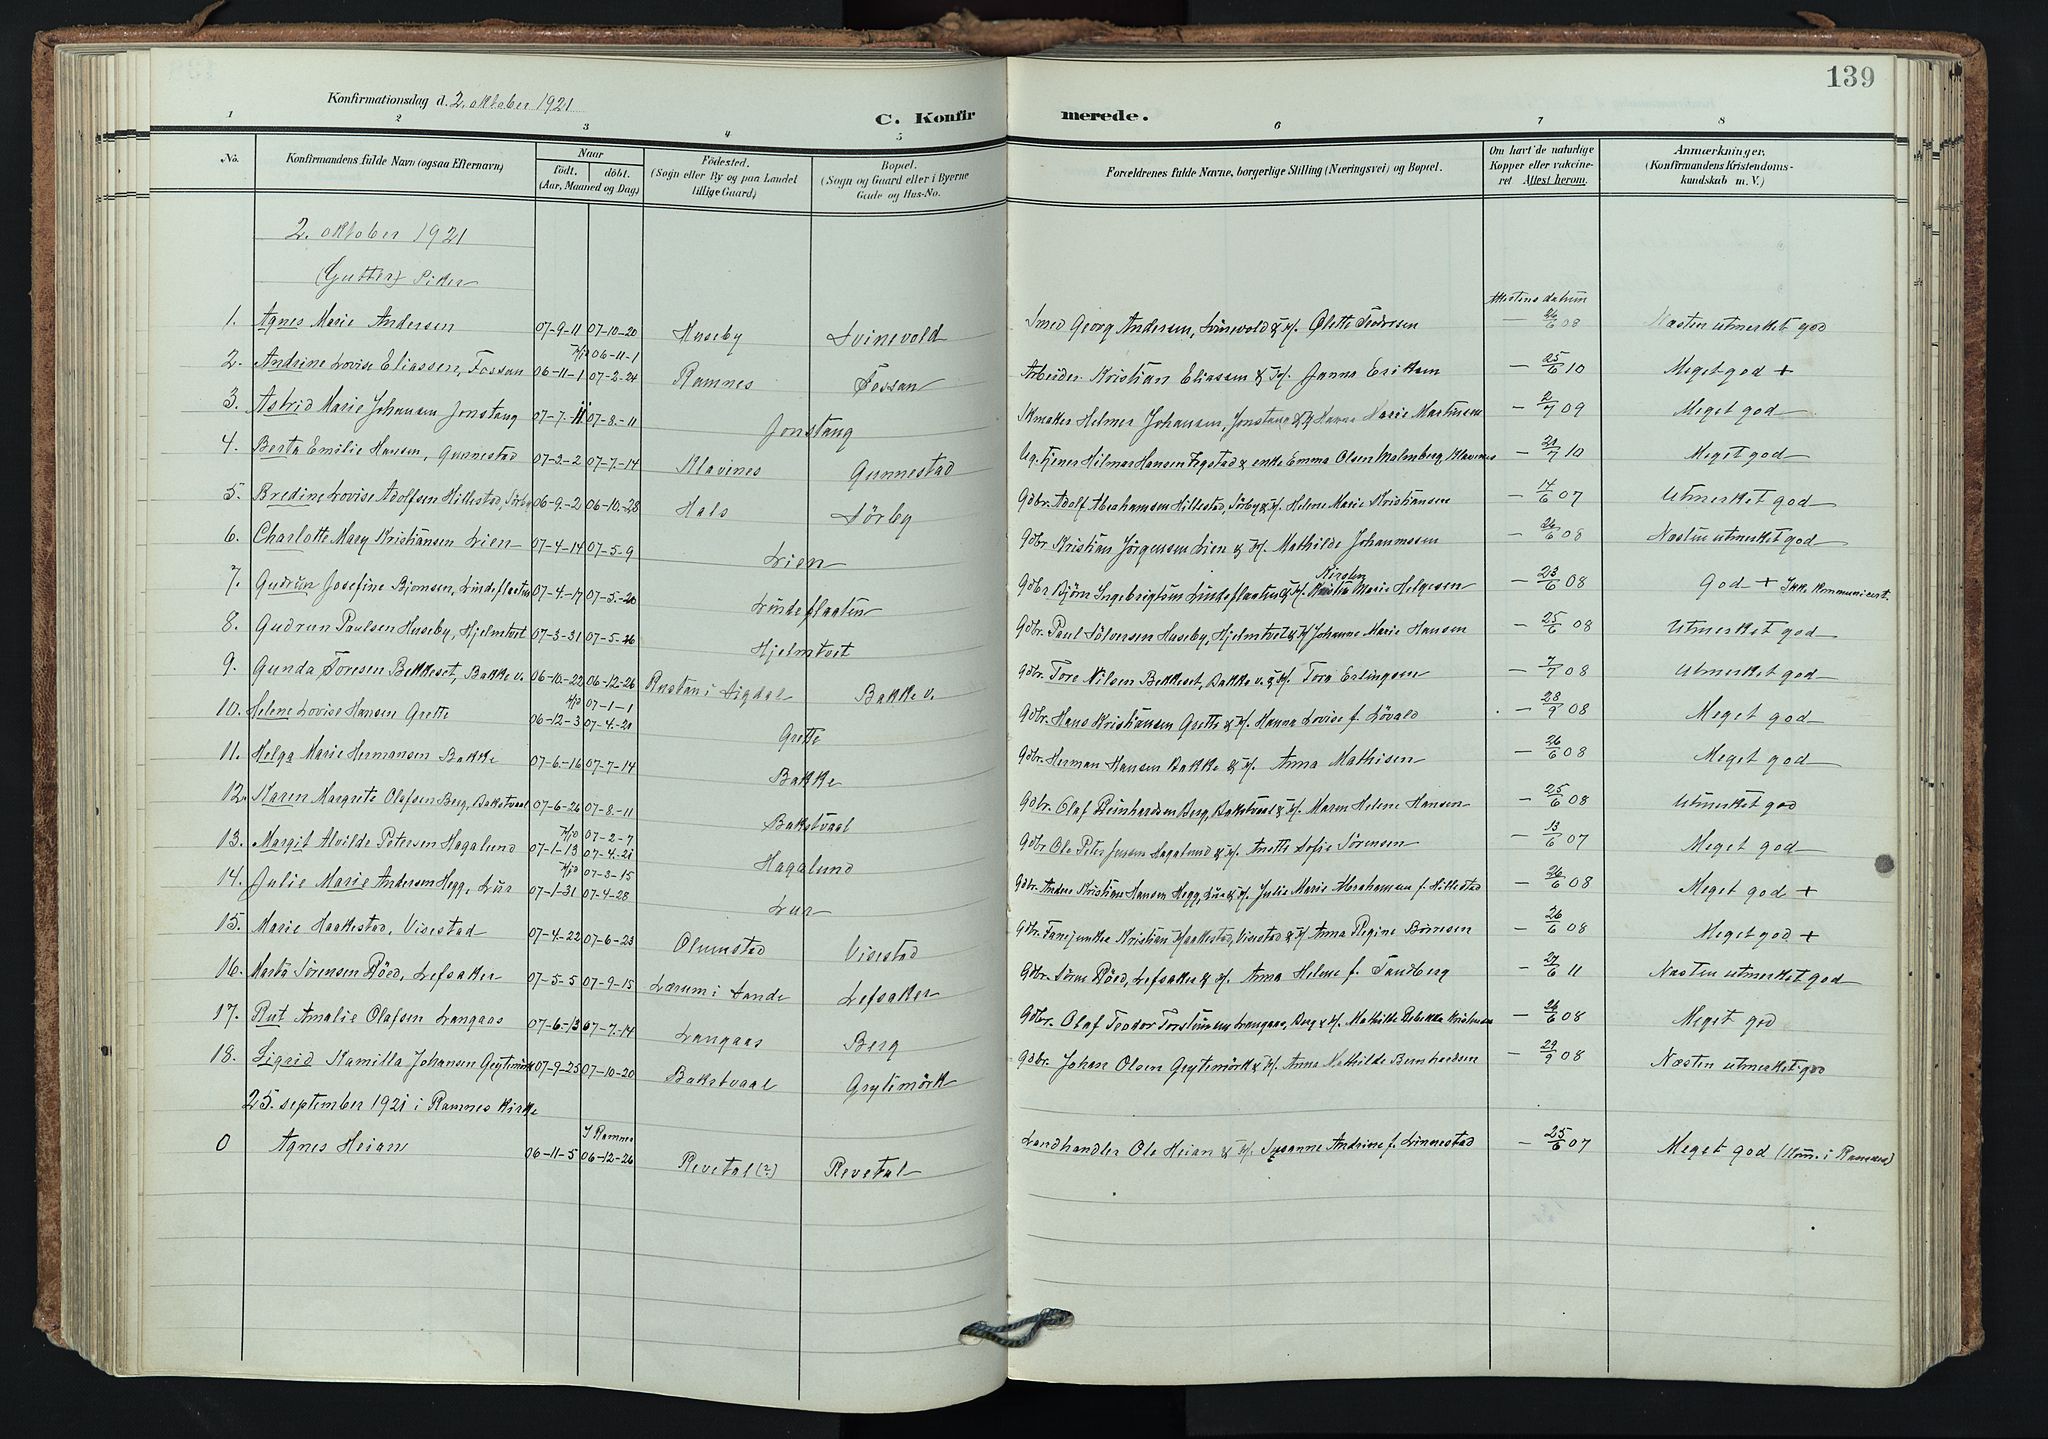 139
Konfirmationsdag d. 2. oktober 1921
C. Konfirmerede.
1 2 3 4 5 6 7 8
No. Konfirmandens fulde Navn (ogsaa Efternavn) Naar født. døbt. (Aar, Maaned og Dag) Fødested. (Sogn eller By og paa Landet tillige Gaard) Bopæl. (Sogn og Gaard eller i Byerne Gade og Hus-No. Forældrenes fulde Navne, borgerlige Stilling (Næringsvei) og Bopæl. Om havt de naturlige Kopper eller vakcineret Attest herom. Anmærkninger. (Konfirmandens Kristendomskundskab m. V.)
2. oktober 1921
(Gutter) Piker
Attestens datum
1. Agnes Marie Andersen 07-9-11 07-10-20 Huseby Svinevold Smed Georg Andersen, Svinevold & H. Olette — 26/6 08 Næsten utmerket god
H/D 06-11-1
2. Andrine Lovise Eliassen, Fossan 06-11-1 07-2-24 Ramnes Fossan Arbeider Kristian Eliassen & H. Janna Eriksen — 25/6 10 Meget god +
3. Astrid Marie Johansen Jonstang 07-7-11 07-8-11 Jonstang Skmaker Helmer Johansen, Jonstang & H. Marie Martinsen — 2/7 09 Meget god
4. Berta Emilie Hansen, Gunnestad 07-3-2 07-7-14 Klavines Gunnestad Ug. tjener Hilmar Hansen & enke Emma Olsen Malmberg, Klavenes — 21/7 10 Meget god
5. Bredine Lovise Adolfsen Hillestad, Sørby 06-9-2 06-10-28 Hals Sørby Gdbr. Adolf Abrahamsen Hillestad, Sørby & H. Helene Marie Kristiansen — 14/6 07 Utmerket god
6. Charlotte Mary Kristiansen Lien 07-4-14 07-5-9 Lien Gdbr Kristian Jørgensen Lien & H. Mathilde Johannesen — 26/6 08 Næsten utmerket god
7. Gudrun Josefine Bjørnsen, Lindeflaaten 07-4-17 07-5-20 Lindeflaaten Gdbr Bjørn Ingebrigtsen Lindeflaaten & H. Kirsten Marie Helgesen — 23/6 08 God + Ikke kommunicert.
8. Gudrun Paulsen Huseby, Hjelmtvet 07-3-31 07-5-26 Hjelmtvet Gdbr. Paul Sølvesen Huseby, Hjelmtvet & H. Johanne Marie Hansen — 25/6 08 Utmerket god
9. Gunda Toresen Bekkeset, Bakke v. 06-10-22 06-12-26 Rustan i Sigdal Bakke v. Gdbr. Tore Nilsen Bekkeset, Bakke v. & H. Tora Erlingsen — 7/7 08 Utmerket god
H/D 07-1-1
10. Helene Lovise Hansen Grette 06-12-3 07-4-21 Grette Gdbr. Hans Kristiansen Grette & H. Hanna Lovise f. Løvald — 28/9 08 Meget god
11. Helga Marie Hermansen Bakke 07-6-16 07-7-14 Bakke Gdbr. Herman Hansen Bakke & H. Anna Mathisen — 26/6 08 Meget god
12. Karen Margrete Olafsen Berg, Bakstvaal 07-6-26 07-8-11 Bakstvaal Gdbr. Olaf Reinhardsen Berg, Bakstvaal & H. Maren Helene Hansen — 25/6 08 Utmerket god
H/D 07-2-7
13. Margit Alvilde Petersen Hagalund 07-1-13 07-4-21 Hagalund Gdbr Ole Peter Jensen Hagalund & H. Anette Sofie Sørensen — 13/6 07 Meget god
H/D 07-3-15
14. Julie Marie Andersen Hegg, Lur 07-1-31 07-4-28 Lur Gdbr. Anders Kristian Hansen Hegg, Lur & H. Julie Marie Abrahamsen f. Hillestad — 26/6 08 Meget god +
15. Marie Haakestad, Visestad 07-4-22 07-6-23 Olumstad Visestad Gdbr. Fanejunker Kristian Haakestad, Visestad & H. Anna Regine — 26/6 08 Meget god +
16. Marta Sørensen Røed, Lefsaker 07-5-5 07-9-15 Lærum i Sande Lefsaker Gdbr. Søren Røed, Lefsaker & H. Anna Helene f. Sandberg — 27/6 11 Næsten utmerket god
17. Rut Amalie Olafsen Langaas 07-6-13 07-7-14 Langaas Berg Gdbr. Olaf Teodor Torstensen Langaas, Berg & H. Mathilde Rebekka Kristensen — 26/6 08 Meget god
18. Sigrid Kamilla Johansen Grytemørk 07-9-25 07-10-20 Bakstvaal Grytemørk Gdbr. Johan Olsen Grytemørk & H. Anna Mathilde Bernhardsen — 29/9 08 Næsten utmerket god
25. september 1921 i Ramnes Kirke
I Ramnes
0 Agnes Heian 06-11-5 06-12-26 Revetal (?) Revetal Landhandler Ole Heian & H. Susanne Andrine f. Linnestad — 25/6 07 Meget god (Kom. i Ramnes)